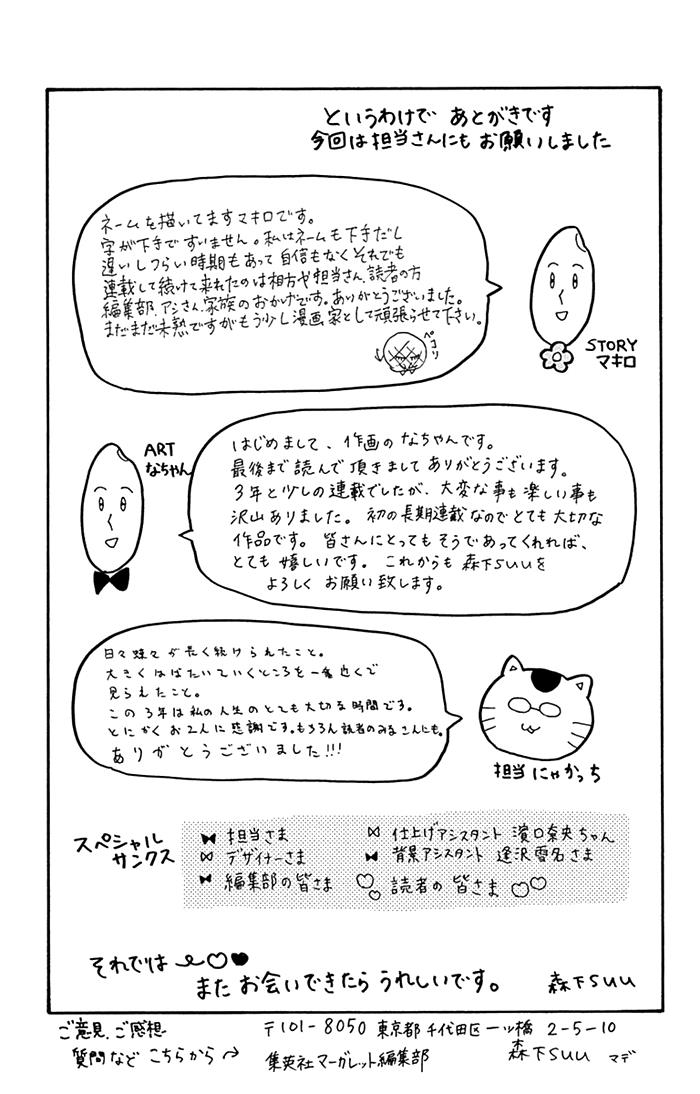 というわけで あとがきです
今回は担当さんにも お願いしました
ネームを描いてますマキロです。
字が下手ですいません。私はネームも下手だし
遅いしつらい時期もあって自信もなくそれでも
連載して続けて来れたのは相方や担当さん、読者の方
編集部、アシさん、家族のおかげです。ありがとうございました。
まだまだ未熟ですがもう少し漫画家として頑張らせて下さい。
ペコリ
STORY
マキロ
ART
なちゃん
はじめまして、作画の なちゃんです。
最後まで読んで頂きましてありがとうございます。
3年と少しの連載でしたが、大変な事も楽しい事も
沢山ありました。初の長期連載なのでとても大切な
作品です。皆さんにとってもそうであってくれれば、
とても嬉しいです。これからも 森下suuを
よろしく お願い致します。
日々蝶々が長く続けられたこと。
大きくはばたいていくところを一番近くで
見られたこと。
この3年は私の人生のとても大切な時間です。
とにかくお2人に感謝です。もちろん読者のみなさんにも。
ありがとうございました!!!
担当 にゃかっち
スペシャル
サンクス
担当さま
デザイナーさま
編集部の皆さま
仕上げアシスタント 濱口奈央ちゃん
背景アシスタント 逢沢雪名さま
読者の皆さま
それでは
また お会いできたら うれしいです。 森下suu
ご意見、ご感想
質問など こちらから→
〒101-8050 東京都千代田区一ツ橋 2-5-10
集英社マーガレット編集部 森下suu マデ